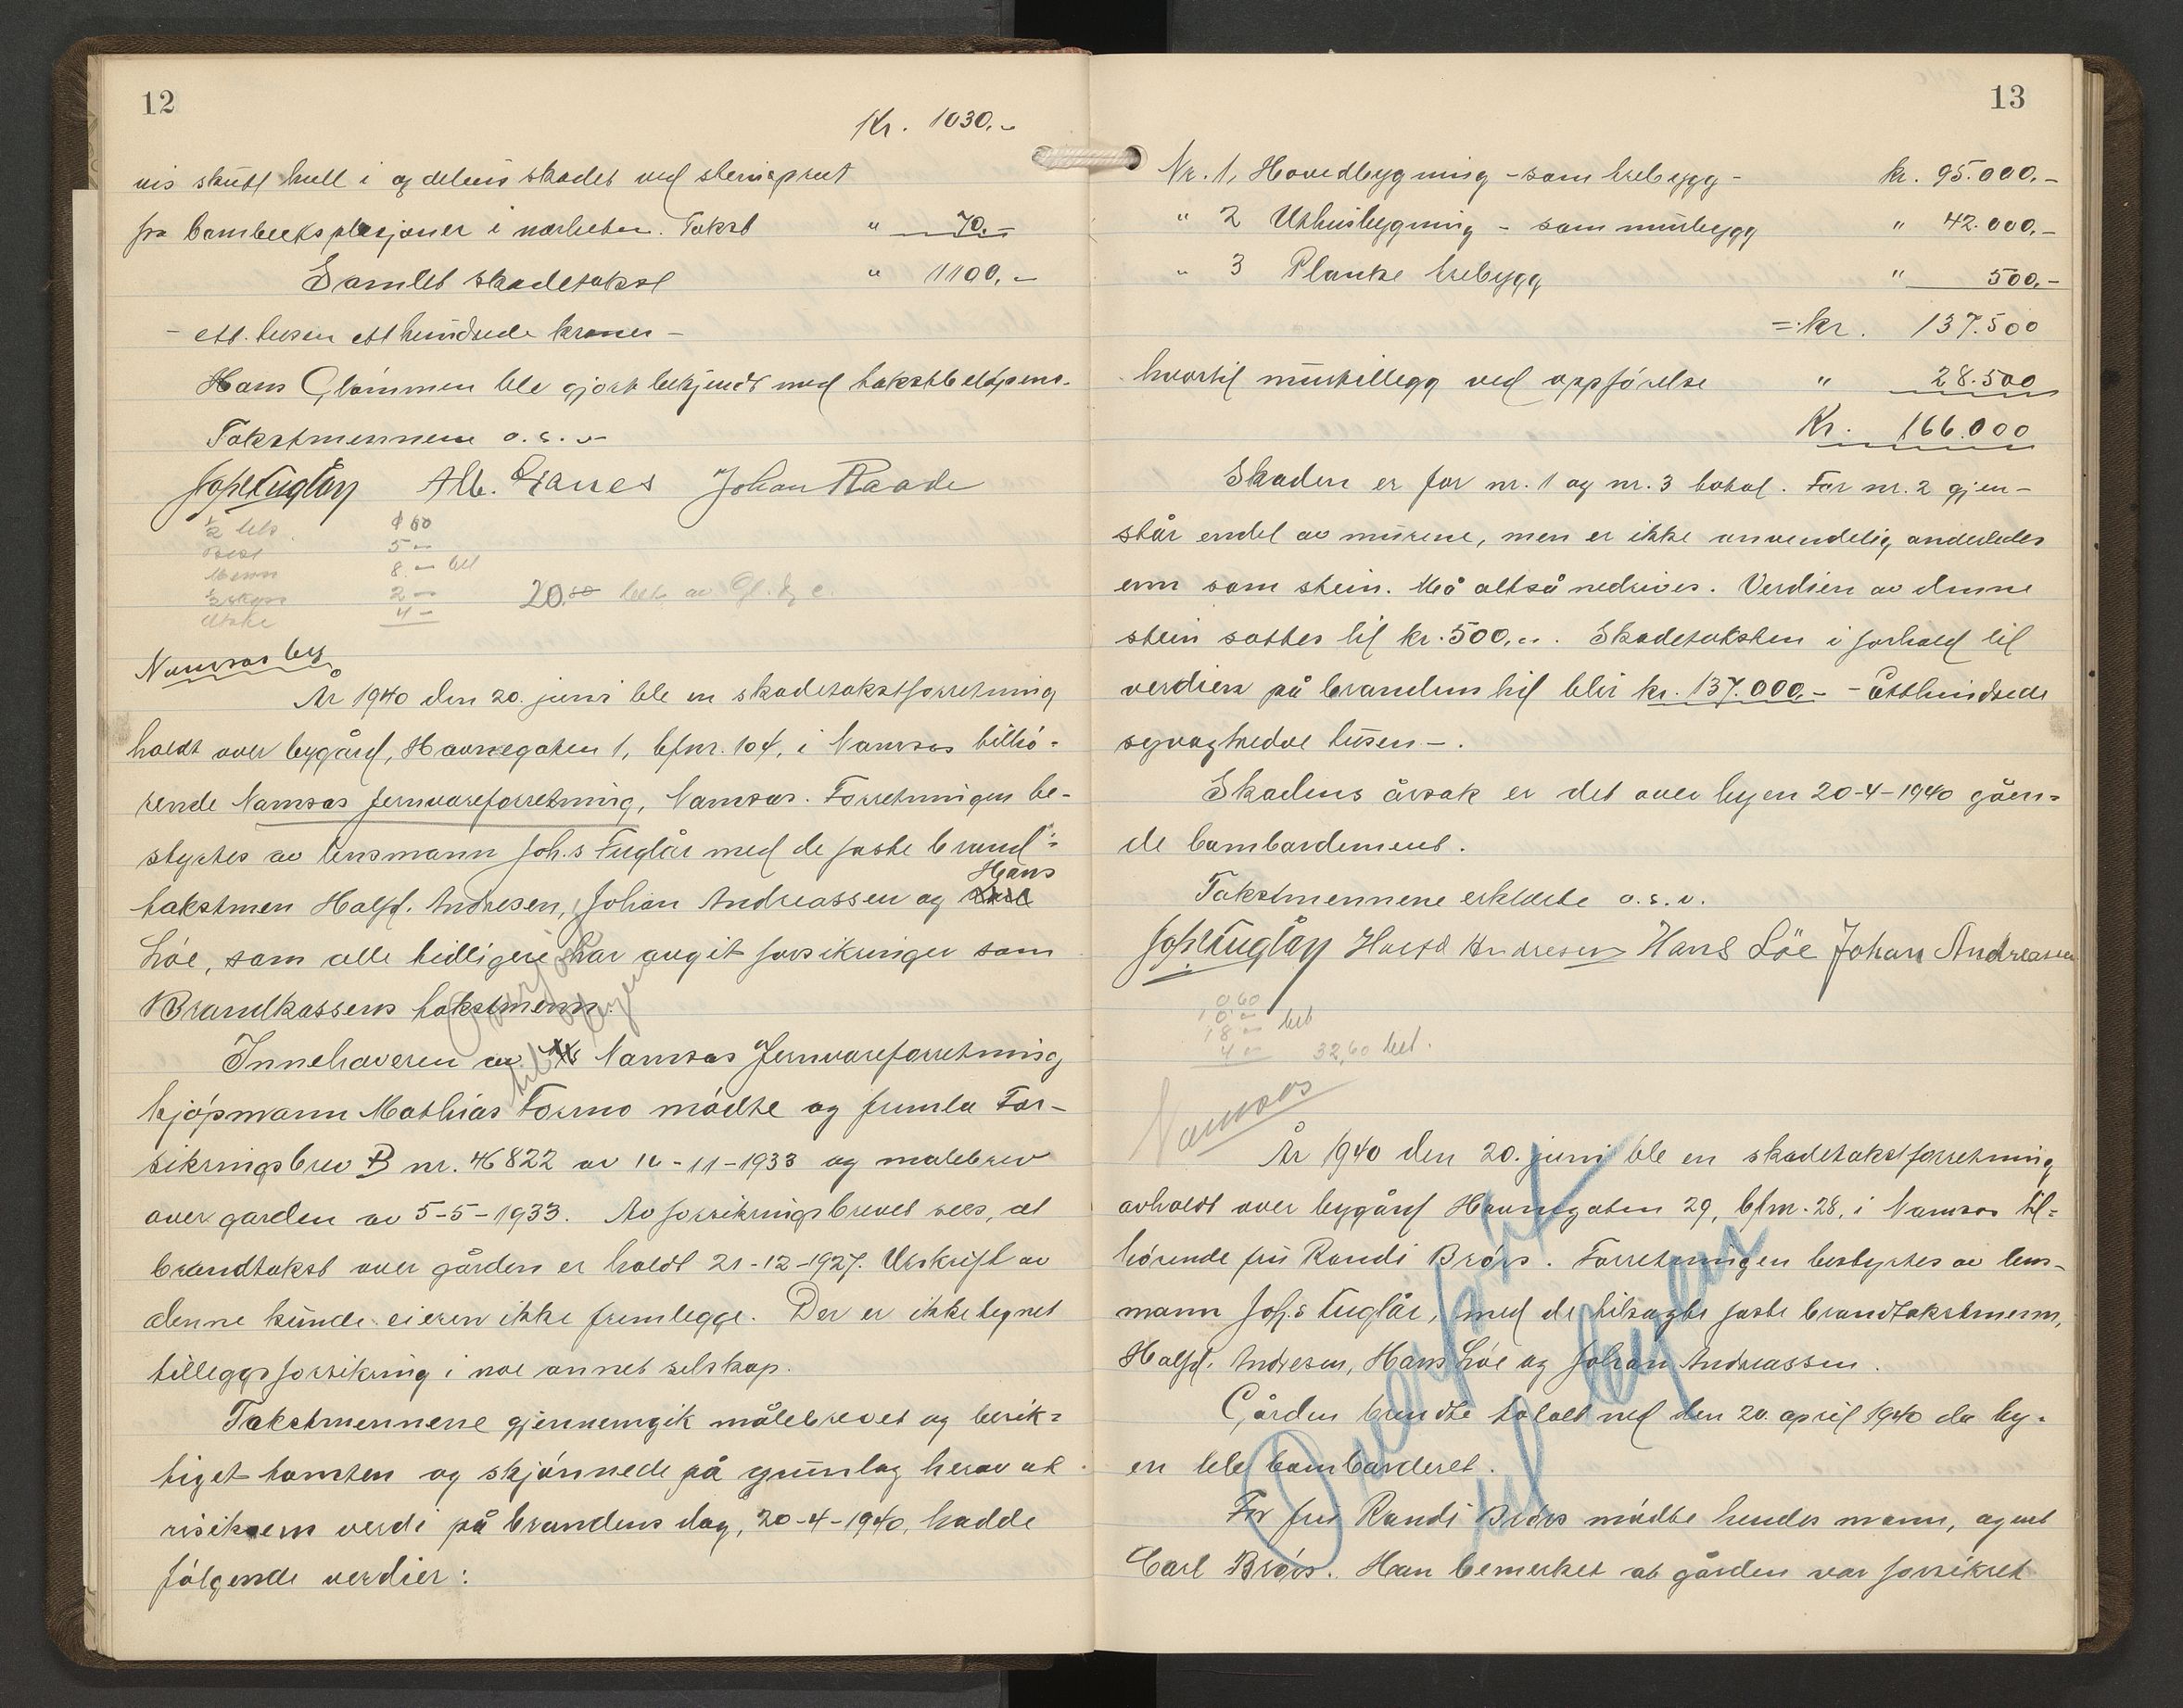 12
Kr. 1030.-
vis skutt hull i og delvis skadet ved steinsprut
fra bombeeksplosjoner i nærheten. Takst " 70.-
Samlet skadetakst " 1100.-
- ett tusen etthundrede kroner -
Hans Glømmen ble gjort bekjendt med takstbeløpene.
Takstmennene o.s.v.
Johs Fuglår Alb. Granes Johan Raade
8.- bet
2.-
4.-
20.60 bet. av
Namsos by
År 1940 den 20. juni ble en skadetakstforretning
holdt over bygård, Havnegaten 1, btnr. 104, i Namsos tilhø-
rende Namsos Jernvareforretning, Namsos. Forretningen be-
styrtes av lensmann Joh.s Fuglår med de faste brand-
takstmen Halfd. Andresen, Johan Andreassen og Hans
Løe, som alle tidligere har avgit forsikringer som
Brandkassens takstmenn.
Innehaveren av Namsos Jernvareforretning
kjøpmann Mathias Formo mødte og fremla For-
sikringsbrev B nr. 46822 av 10-11-1933 og målebrev
over garden av 5-5-1933. Av forsikringsbrevet sees, at
brandtakst over gården er holdt 21-12-1927. Utskrift av
denne kunde eieren ikke fremlegge. Der er ikke tegnet
tilleggsforsikring i noe annet selskap.
Takstmennene gjennemgik målebrevet og besik-
tiget tomten og skjønnede på grunlag herav at
risikoens verdi på brandens dag, 20-4-1940, hadde
følgende verdier:
13
Nr. 1, Hovedbygning - som trebygg - kr. 95.000.-
" 2 Uthusbygning - som murbygg " 42.000.-
" 3 Planke trebygg " 500.-
=: kr. 137.500
hvortil murtillegg ved oppførelse " 28.500
Kr. 166.000
Skaden er for nr. 1 og nr. 3 total. For nr. 2 gjen-
står endel av murene, men er ikke anvendelig anderledes
enn som stein. Må altså nedrives. Verdien av denne
stein settes til kr. 500.-. Skadetaksten i forhold til
verdien på brandens tid blir kr. 137.000.- - Etthundrede
syvogtredve tusen -.
Skadens årsak er det over byen 20-4-1940 gåen-
de bombardement.
Takstmennene erklærte o.s.v.
Johs Fuglår Halfd Andresen Hans Löe Johan Andreassen
0.60
10.-
18.- bet
4.- 32,60 bet.
Namsos
År 1940 den 20. juni ble en skadetakstforretning
avholdt over bygård Havnegaten 29, btnr. 28, i Namsos til-
hørende fru Randi Brørs. Forretningen bestyrtes av lens-
mann Joh.s Fuglår, med de tilsagte faste brandtakstmenn,
Halfd. Andresen, Hans Løe og Johan Andreassen.
Gården brendte totalt ned den 20. april 1940 da by-
en ble bombarderet.
For fru Randi Brørs mødte hendes mann, agent
Carl Brørs. Han bemerket at gården var forsikret